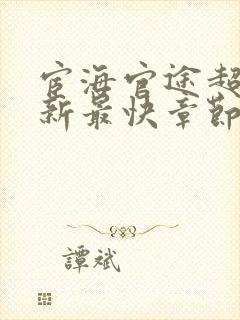 宦海官途超
新最快章節
譚斌